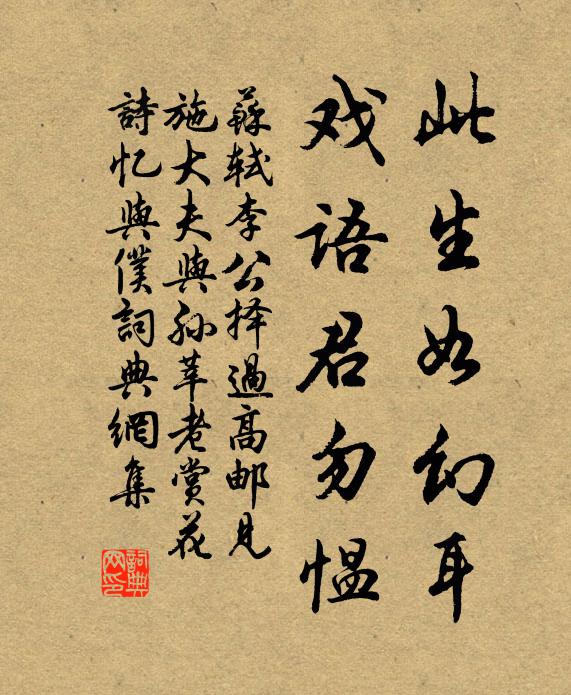 此生如幻耳
戏语君勿愠
蘇轼李公择過高邮見
施大夫與孙莘老赏花
詩忆與僕詞典網集
詞典
网印